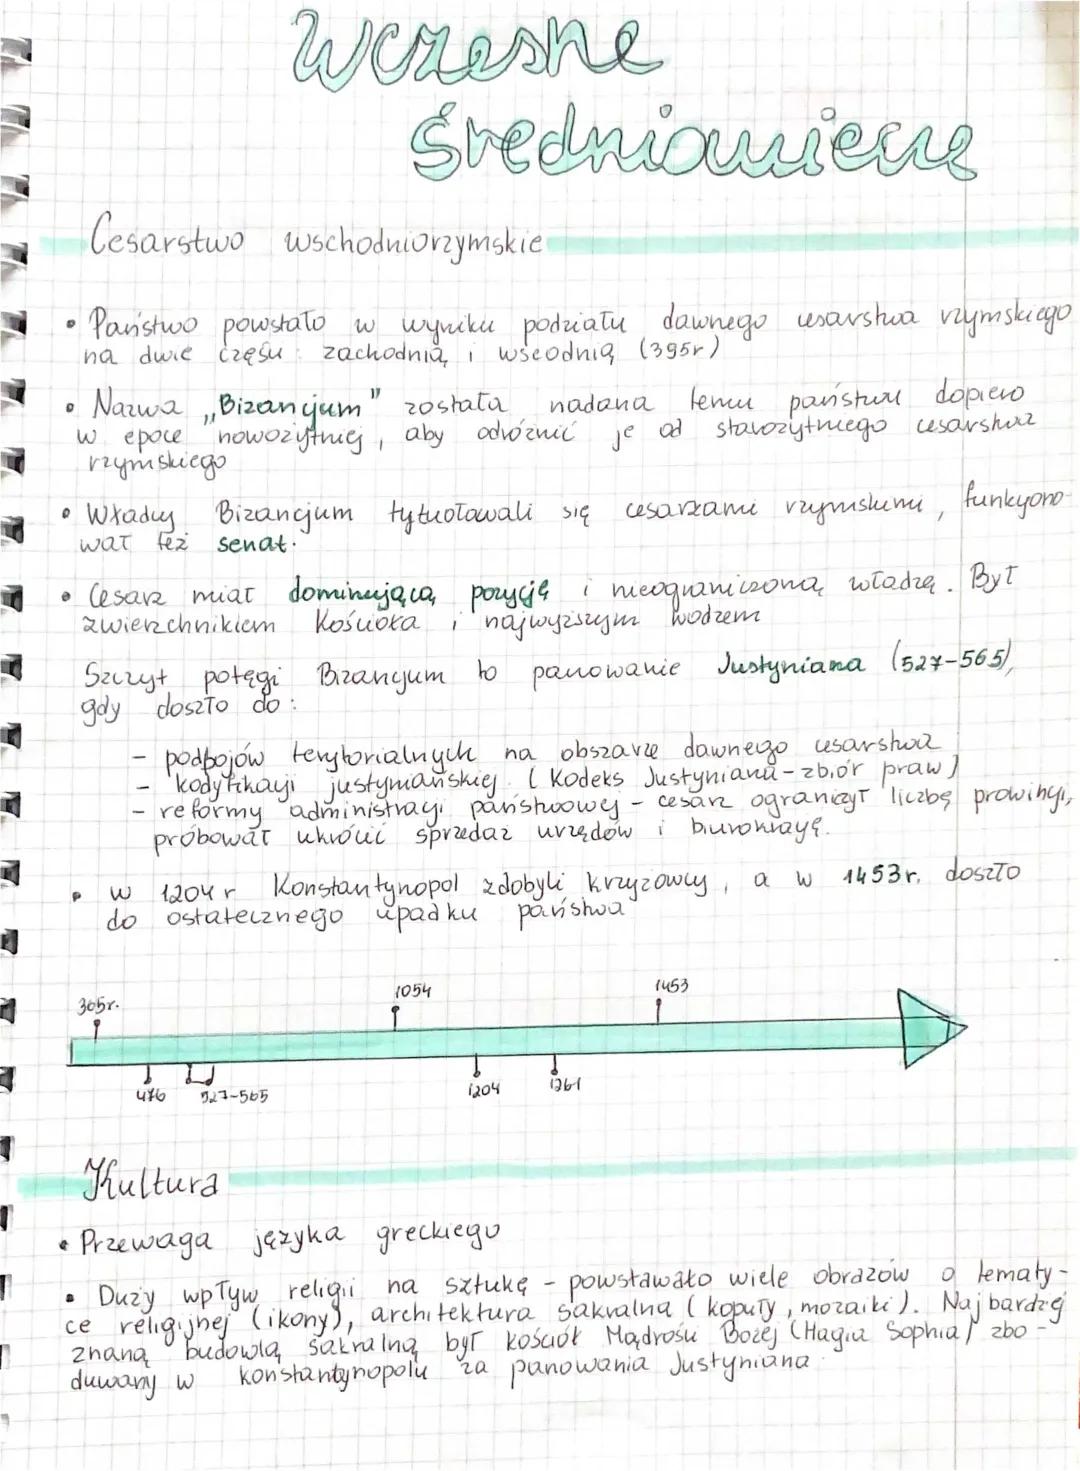 Wczesne
średniowiecze
Cesarstwo wschodniorzymskie
• Państwo powstało w wyniku podziału dawnego cesarstwa rzymskiego
na dwie części: zachodnią i wscodnią (395r)
• Nazwa „Bizancjum" została nadana temu państwu dopiero
w epoce nowożytniej, aby odróżnić je od starożytniego cesarstwa
rzymskiego
• Władcy Bizancjum tytuołowali się cesarzami rzymskimi, funkcjono-
wał też senat.
• Cesarz miał dominującą pozycję i nieograniczoną władzę. Był
zwierzchnikiem Kościoła i najwyższym wodzem
Szczyt potęgi Bizancjum to panowanie Justyniana (527-565),
gdy doszło do:
- podbojów terytorialnych na obszarze dawnego cesarstwa
- kodyfikacji justyniańskiej (Kodeks Justyniana - zbiór praw)
- reformy administracji państwowej - cesarz ograniczył liczbę prowincji,
próbował ukrócić sprzedaż urzędów i biurokrację.
• w 1204 r Konstantynopol zdobyli krzyżowcy, a w 1453r. doszło
do ostatecznego upadku państwa
305r.
1054
1453
476
527-565
1204
1261
Kultura
• Przewaga języka greckiego
• Duży wpływ religii na sztukę - powstawało wiele obrazów o tematy-
ce religijnej (ikony), architektura sakralna (kopuły, mozaiki). Najbardzej
znaną budowlą sakralną był kościół Mądrości Bożej (Hagia Sophia) zbo-
duwany w konstantynopolu za panowania Justyniana